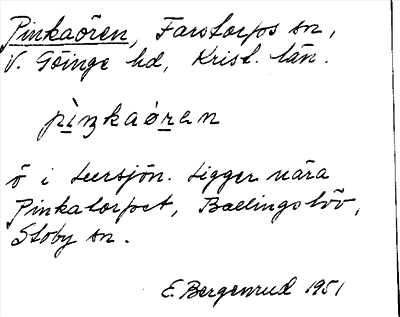 Pinkaören, Farstorps sn,
V. Göinge hd, Krist. län.
pìŋkaǿren
ö i Lursjön. Ligger nära
Pinkatorpet, Ballingslöv,
Stoby sn.
E. Bergenrud 1951